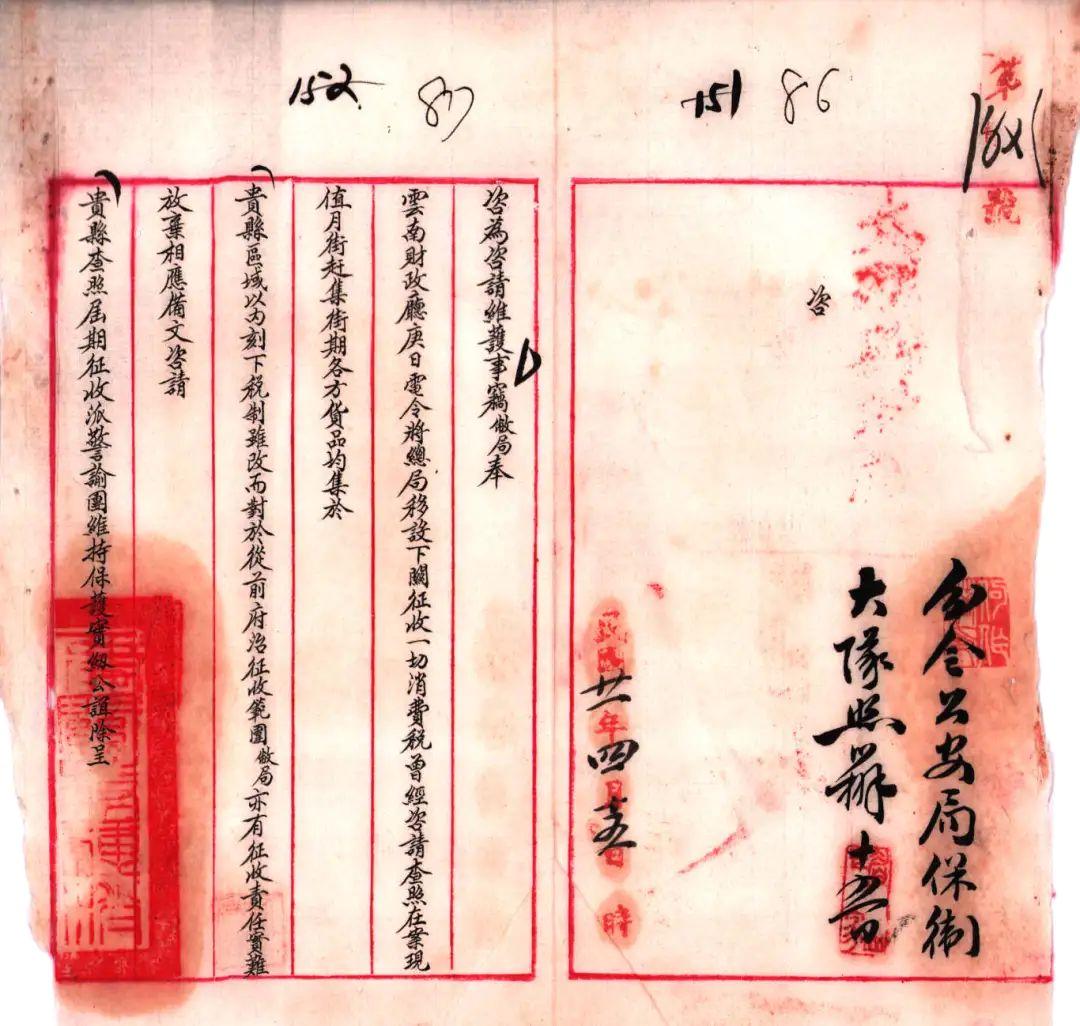 151 86
第
號
咨
分令公安局保衛
大隊照辦 十五日
民國廿一年四月十五日 時
152 87
咨為咨請維護事竊敝局奉
雲南財政廳庚日電令將總局移設下關征收一切消費稅曾經咨請查照在案現
值月街赶集街期各方貨品均集於
貴縣區域以为刻下稅制雖改而對於從前府治征收範圍敝局亦有征收責任實難
放棄相應備文咨請
貴縣查照屆期征收派警諭團維持保護實級公誼除呈